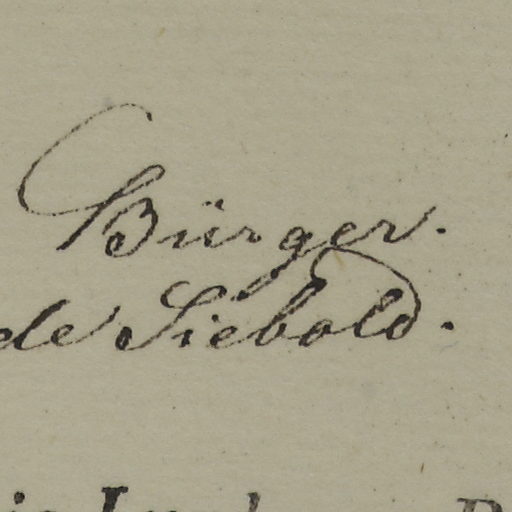 Bürger.
de Siebold.